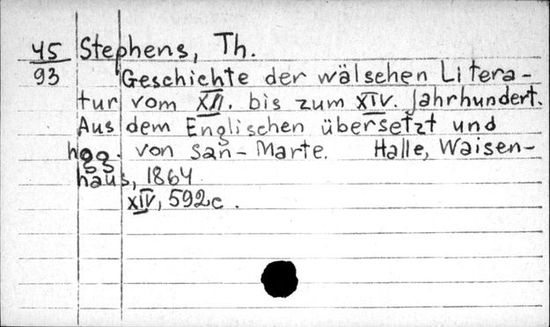 45/93 Stephens, Th.
Geschichte der wälschen Litera-
tur vom XII. bis zum XIV. Jahrhundert.
Aus dem Englischen übersetzt und
hgg. von San-Marte. Halle, Waisen-
haus, 1864
XIV, 592c.